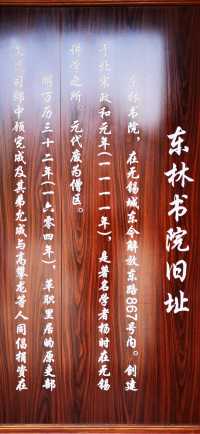 东林书院旧址
东林书院，在无锡城东今解放东路867号内。创建
于北宋政和元年（一一一一年），是著名学者杨时在无锡
讲学之所。元代废为僧区。
明万历三十二年（一六零四年），革职里居的原吏部
郎中顾宪成及其弟允成与高攀龙等人同倡捐资在